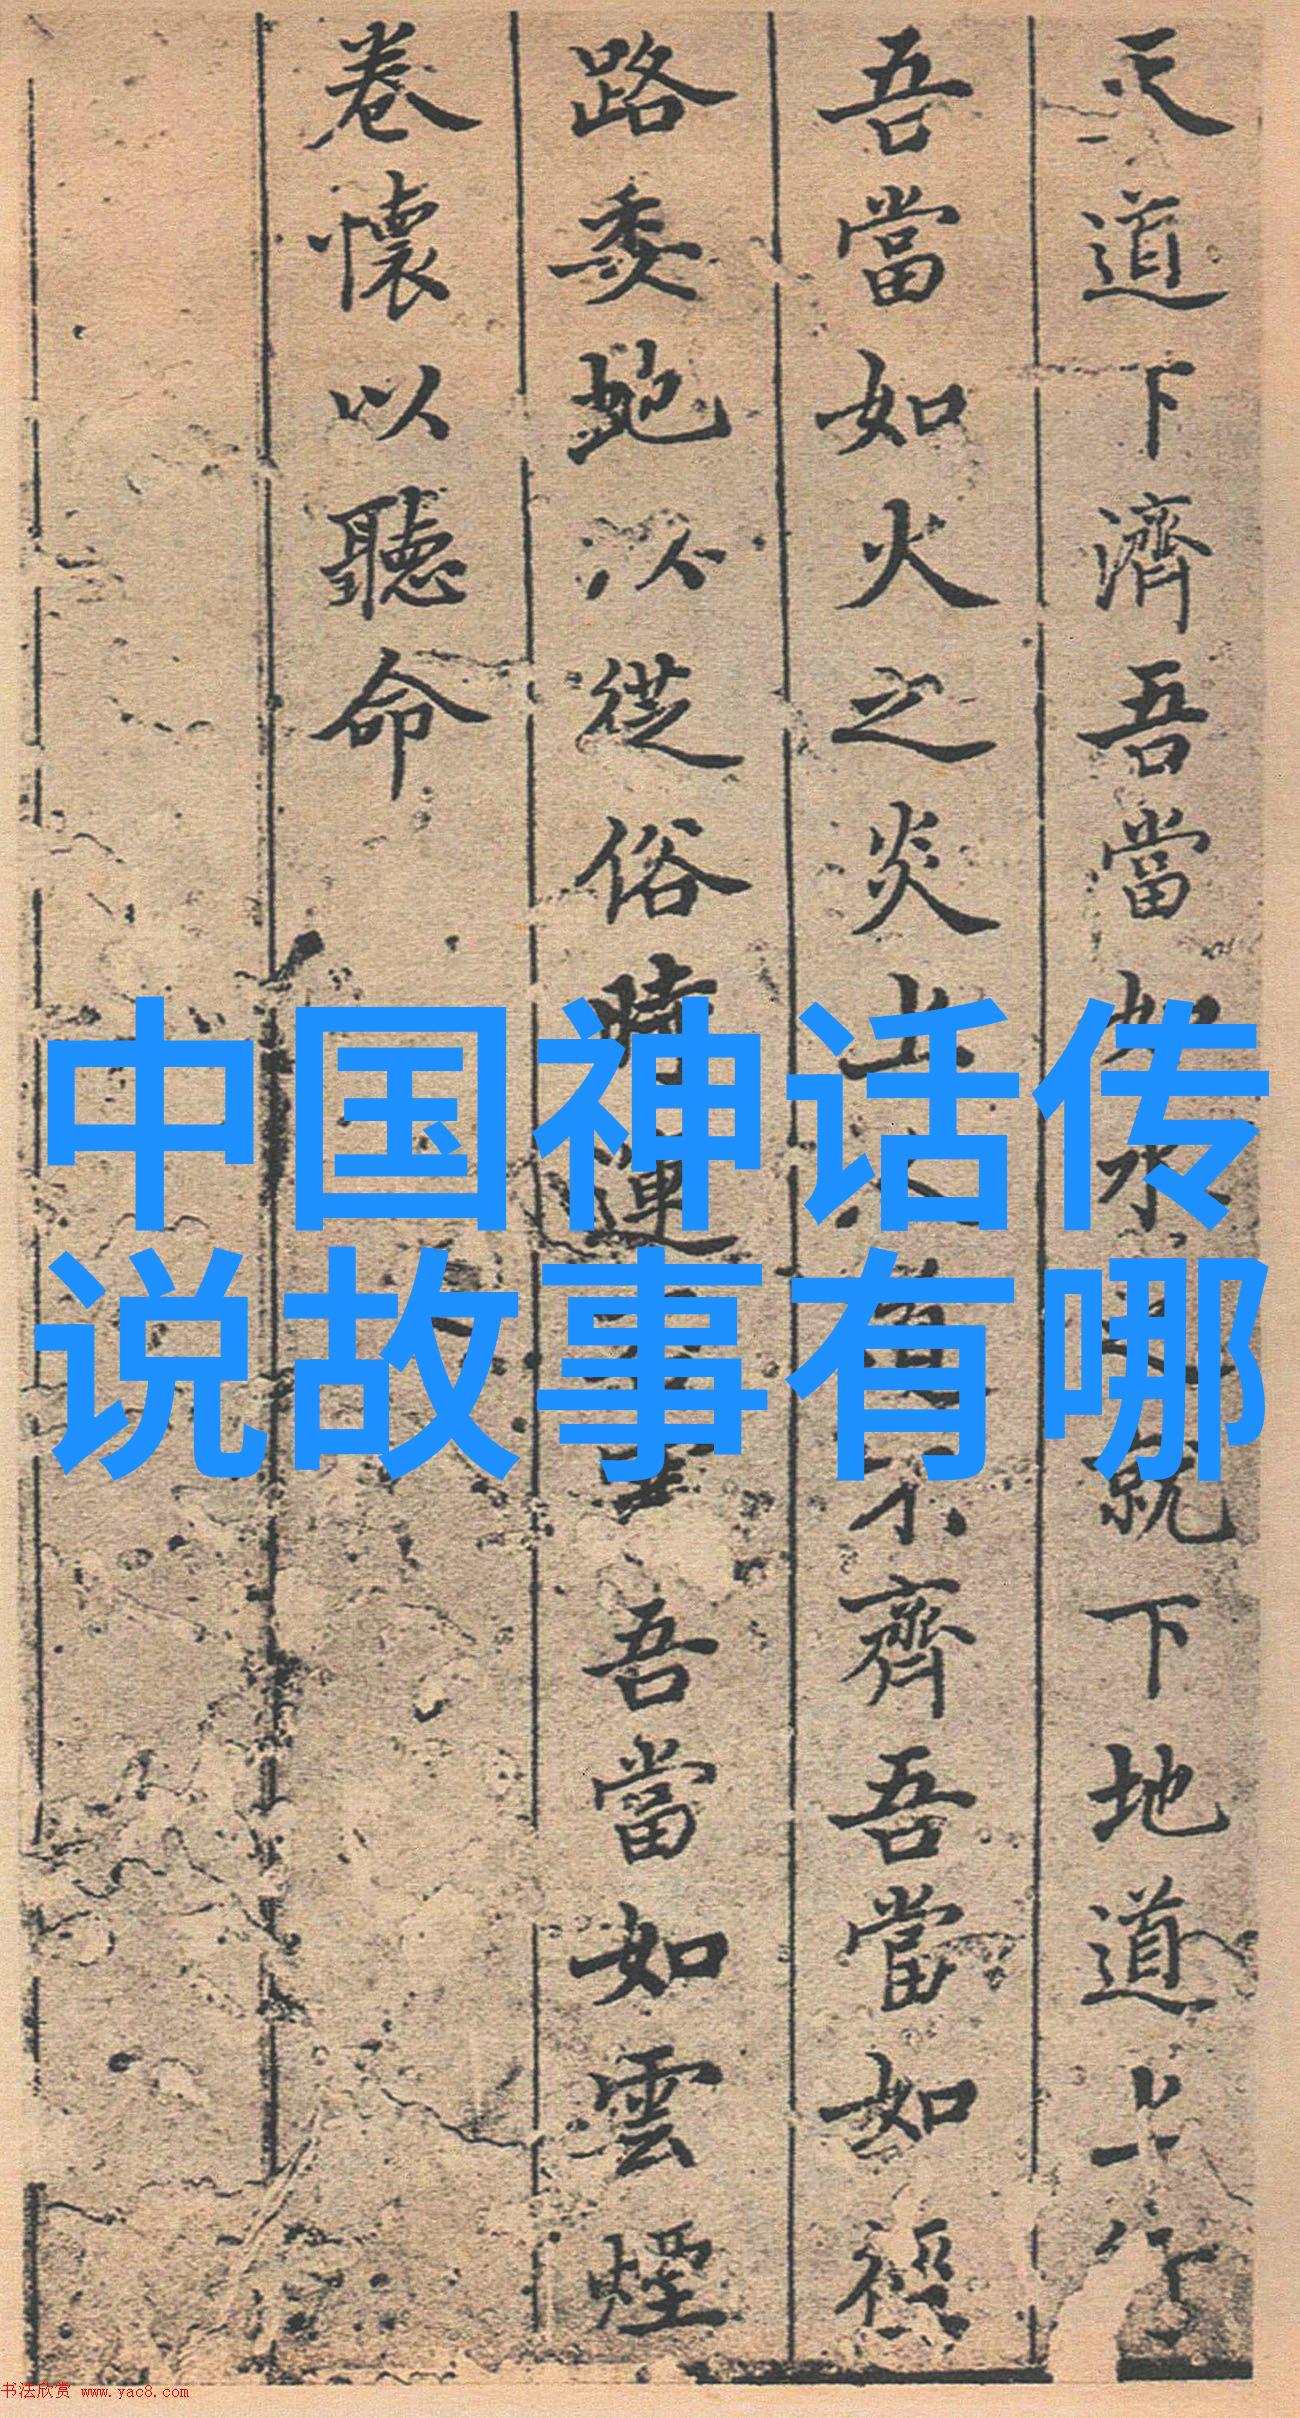 天道下濟吾當如水之就下地道上行
吾當如火之炎上人道不齊吾當如徑
路委虵以從俗時運不至吾當如雲煙
卷懷以聽命
中国神话传
说故事有哪
书法欣赏 www.yac8.com